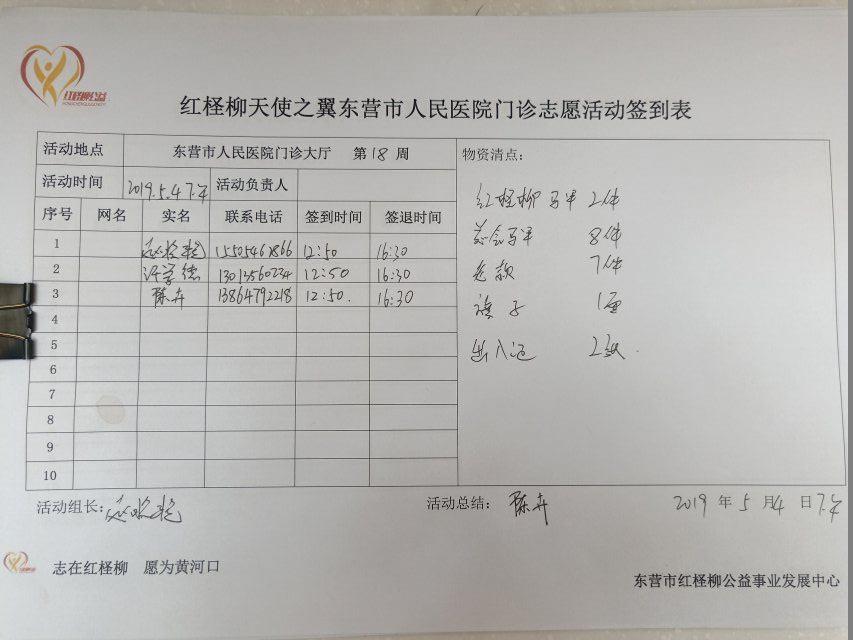 红柽柳公益
红柽柳天使之翼东营市人民医院门诊志愿活动签到表
活动地点 东营市人民医院门诊大厅 第18周 物资清点:
活动时间 2019.5.4下午 活动负责人
序号 网名 实名 联系电话 签到时间 签退时间
红柽柳马甲 2件
8件
7件
旗子 1面
出入证 2
1 15505461866 12:50 16:30
2 许学德 13013560234 12:50 16:30
3 陈卉 13864792218 12:50. 16:30
4
5
6
7
8
9
10
活动组长: 活动总结: 陈卉 2019年5月4日下午
志在红柽柳 愿为黄河口
东营市红柽柳公益事业发展中心